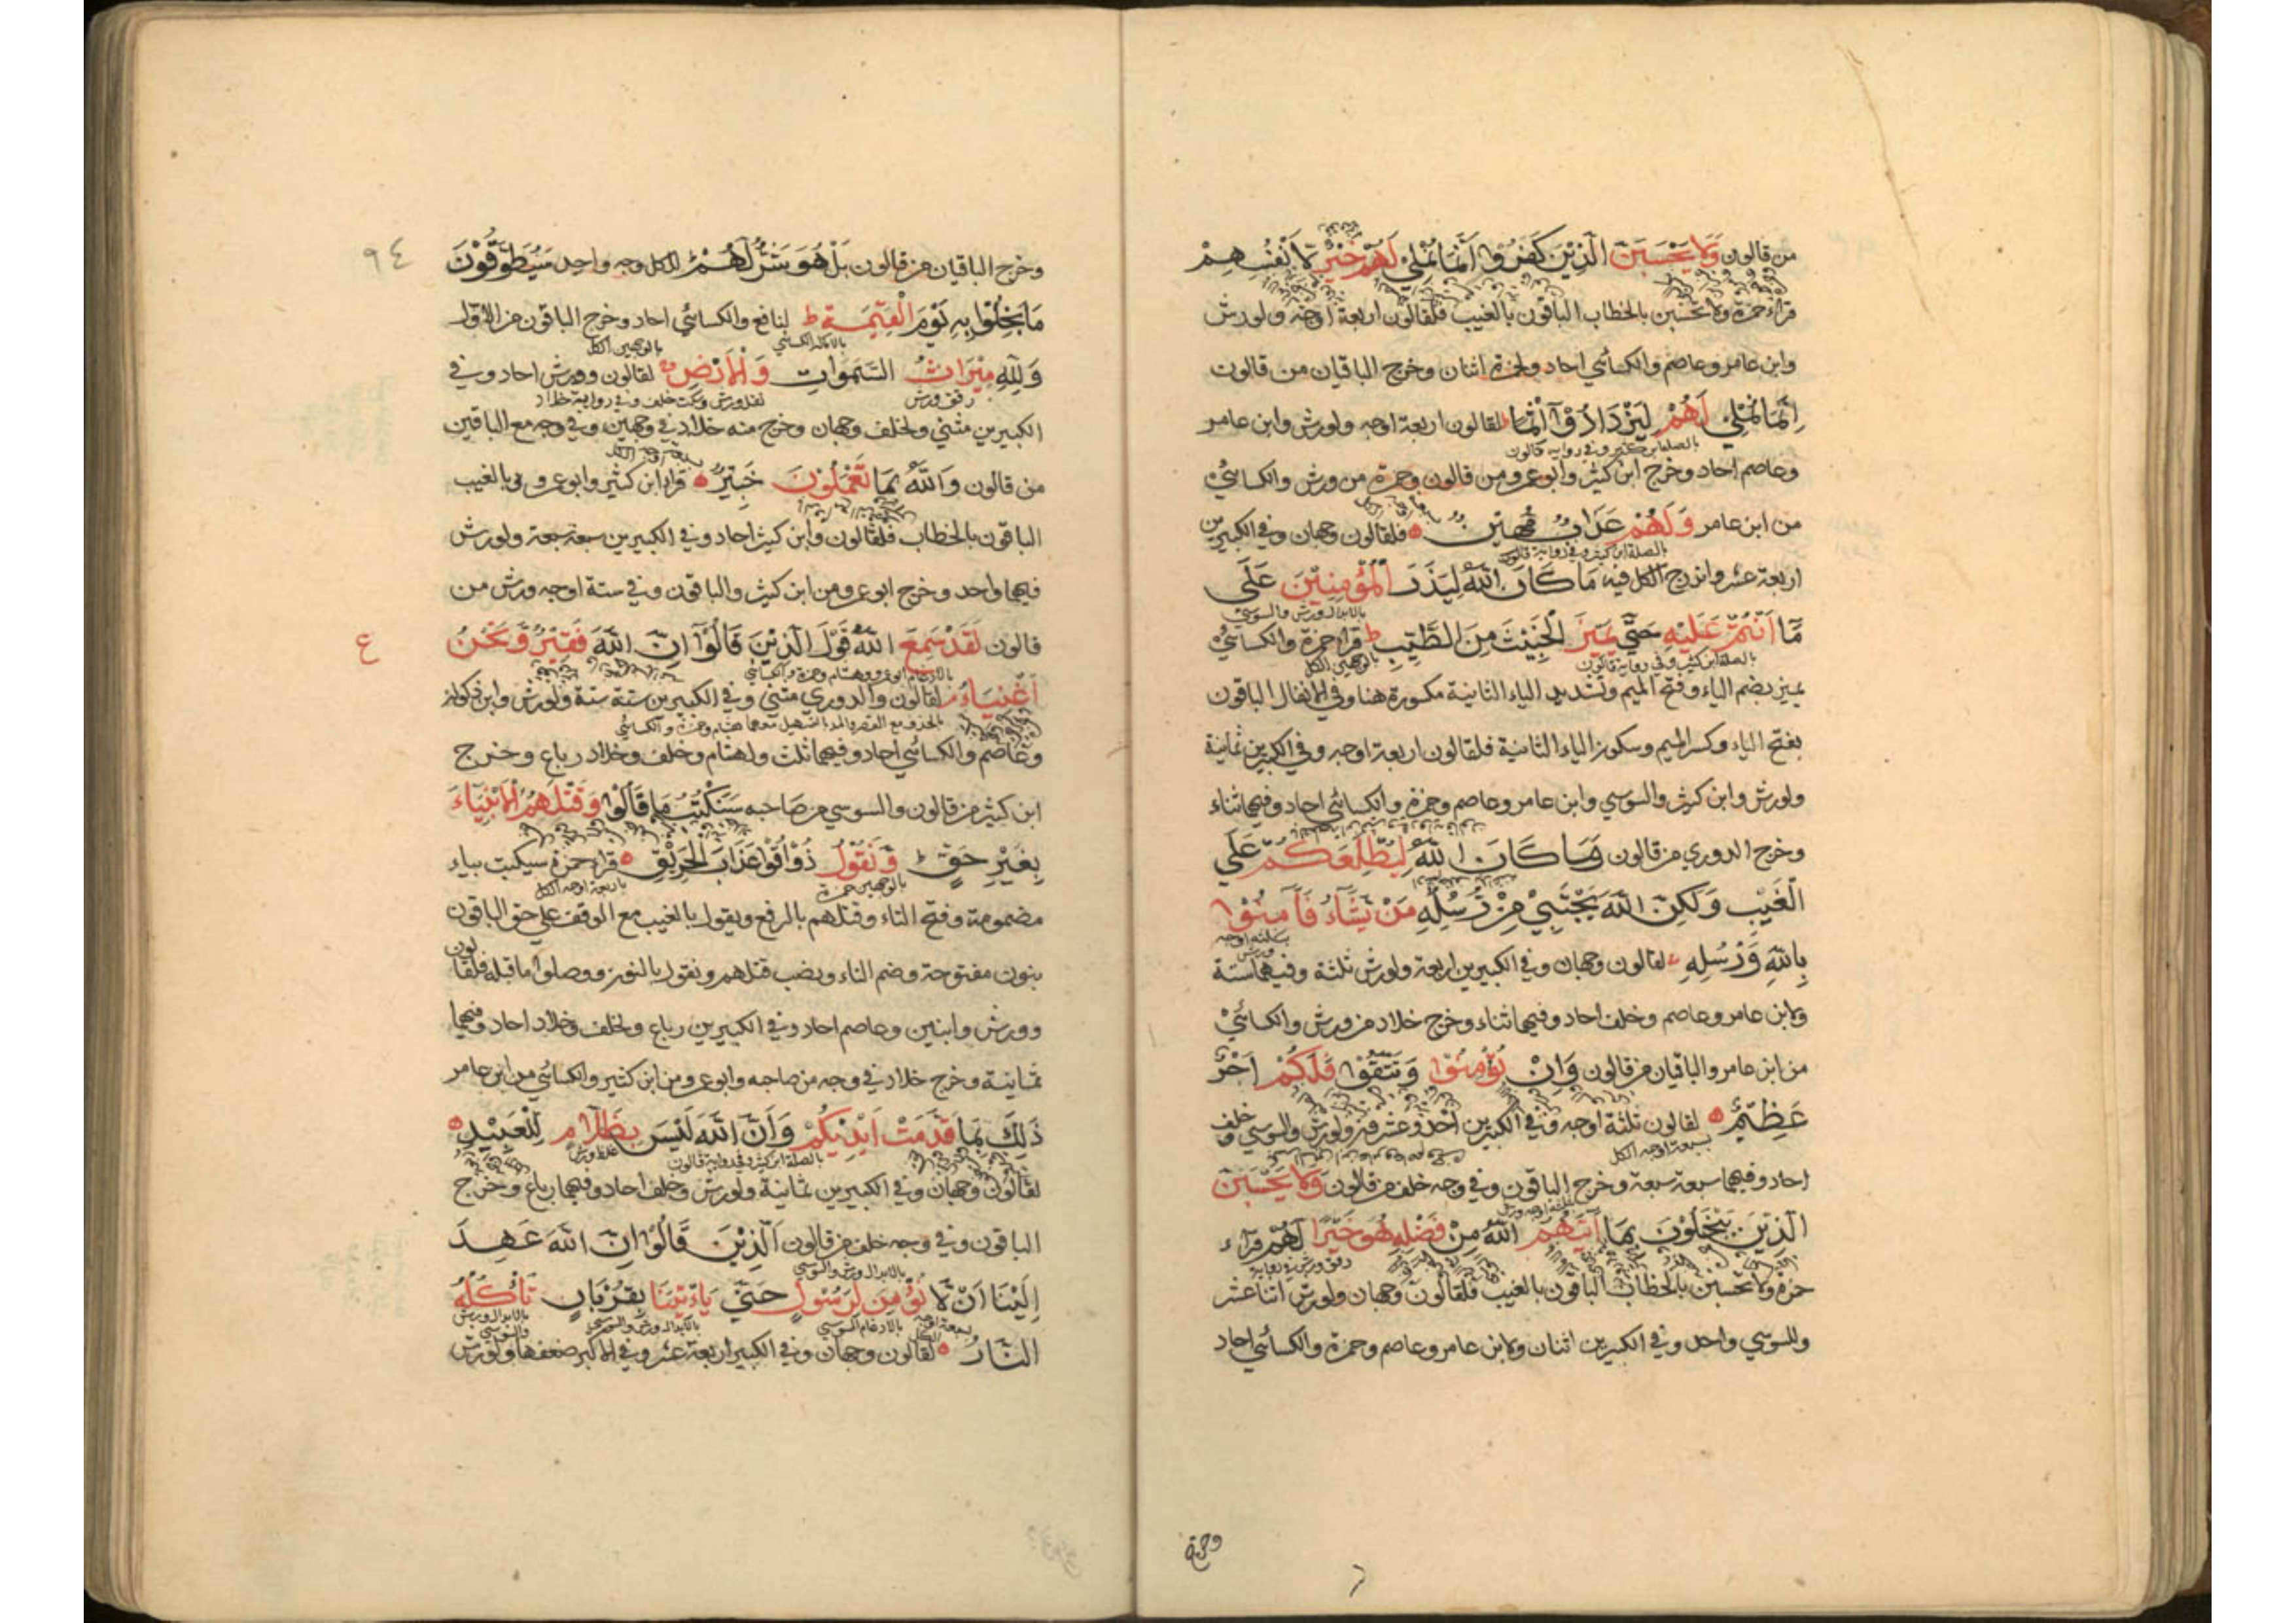 من قالون وَلَا يَحْسَبَنَّ الَّذِيْنَ كَفَرُوْا اَنَّمَا نُمْلِيْ لَهُمْ خَيْرٌ لِّاَنْفُسِهِمْ
قراء حمزة ولا تحسبن بالخطاب الباقون بالغيب فلقالون اربعة اوجه ولورش
وابن عامر وعاصم والكسائي احاد ولحمزة اثنان وخرج الباقيان من قالون
اِنَّمَا نُمْلِيْ لَهُمْ لِيَزْدَادُوْٓا اِثْمًا لقالون اربعة اوجه ولورش وابن عامر
بالصلة ابن كثير وفي رواية قالون
وعاصم احاد وخرج ابن كثير وابوعمرو من قالون وحمزة من ورش والكسائي
من ابن عامر وَلَهُمْ عَذَابٌ مُّهِيْنٌ فلقالون وجهان وفي الكبيرين
بالصلة ابن كثير وفي رواية قالون
اربعة عشر واندرج الكل فيه مَا كَانَ اللّٰهُ لِيَذَرَ الْمُؤْمِنِيْنَ عَلٰى
بالابدال ورش والسوسي
مَآ اَنْتُمْ عَلَيْهِ حَتّٰى يَمِيْزَ الْخَبِيْثَ مِنَ الطَّيِّبِ ط قراء حمزة والكسائي
بالصلة ابن كثير وفي رواية قالون بالوجهين الكل
يميز بضم الياء وفتح الميم وتشديد الياء الثانية مكسورة هنا وفي الانفال الباقون
بفتح الياء وكسر الميم وسكون الياء الثانية فلقالون اربعة اوجه وفي الكبيرين ثمانية
ولورش وابن كثير والسوسي وابن عامر وعاصم وحمزة والكسائي احاد وفيهما ثناء
وخرج الدوري من قالون وَمَا كَانَ اللّٰهُ لِيُطْلِعَكُمْ عَلَى
الْغَيْبِ وَلٰكِنَّ اللّٰهَ يَجْتَبِيْ مِنْ رُّسُلِهٖ مَنْ يَّشَآءُ فَاٰمِنُوْا
بثلثة اوجه ورش
بِاللّٰهِ وَرُسُلِهٖ لقالون وجهان وفي الكبيرين اربعة ولورش ثلثة وفيهما ستة
ولابن عامر وعاصم وخلف احاد وفيهما ثناء وخرج خلاد من ورش والكسائي
من ابن عامر والباقيان من قالون وَاِنْ تُؤْمِنُوْا وَتَتَّقُوْا فَلَكُمْ اَجْرٌ
عَظِيْمٌ لقالون ثلثة اوجه وفي الكبيرين احد وعشرون ولورش والسوسي وخلف
بسبعة اوجه الكل
احاد وفيهما سبعة سبعة وخرج الباقون وفي وجه خلف من قالون وَلَا يَحْسَبَنَّ
الَّذِيْنَ يَبْخَلُوْنَ بِمَا اٰتٰىهُمُ اللّٰهُ مِنْ فَضْلِهٖ هُوَ خَيْرًا لَّهُمْ قراء
حمزة ولا تحسبن بالخطاب الباقون بالغيب فلقالون وجهان ولورش اثنا عشر
وللسوسي واحد وفي الكبيرين اثنان ولابن عامر وعاصم وحمزة والكسائي احاد
وحمزة
٩٤
وخرج الباقيان من قالون بَلْ هُوَ شَرٌّ لَّهُمْ لكل وجه واحد سَيُطَوَّقُوْنَ
مَا بَخِلُوْا بِهٖ يَوْمَ الْقِيٰمَةِ ط لنافع والكسائي احاد وخرج الباقون من الاول
بالامالة الكسائي بالوجهين الكل
وَلِلّٰهِ مِيْرَاثُ السَّمٰوَاتِ وَالْاَرْضِ لقالون وورش احاد وفي
رقق ورش نقل ورش وسكت خلف وفي رواية خلاد
الكبيرين مثنى ولخلف وجهان وخرج منه خلاد في وجهين وفي وجه مع الباقين
من قالون وَاللّٰهُ بِمَا تَعْمَلُوْنَ خَبِيْرٌ قراء ابن كثير وابوعمرو بالغيب
الباقون بالخطاب فلقالون وابن كثير احاد وفي الكبيرين سبعة سبعة ولورش
فيهما واحد وخرج ابوعمرو من ابن كثير والباقون وفي ستة اوجه ورش من
ع
قالون لَقَدْ سَمِعَ اللّٰهُ قَوْلَ الَّذِيْنَ قَالُوْٓا اِنَّ اللّٰهَ فَقِيْرٌ وَّنَحْنُ
بالادغام ابوعمرو وهشام وحمزة والكسائي
اَغْنِيَآءُ لقالون والدوري مثنى وفي الكبيرين ستة ستة ولورش وابن ذكوان
وعاصم والكسائي احاد وفيهما ثلث ولهشام وخلف وخلاد رباع وخرج
ابن كثير من قالون والسوسي من صاحبه سَنَكْتُبُ مَا قَالُوْا وَقَتْلَهُمُ الْاَنْۢبِيَآءَ
بِغَيْرِ حَقٍّ وَّنَقُوْلُ ذُوْقُوْا عَذَابَ الْحَرِيْقِ قراء حمزة سيكتب بياء
بالوجهين حمزة باربعة اوجه الكل
مضمومة وفتح التاء وقتلهم بالرفع ويقول بالغيب مع الوقف على حق الباقون
بنون مفتوحة وضم التاء ونصب قتلهم ونقول بالنون ووصلوا ما قبله فلقالون
وورش وابنين وعاصم احاد وفي الكبيرين رباع ولخلف وخلاد احاد وفيهما
ثمانية وخرج خلاد في وجه من صاحبه وابوعمرو من ابن كثير والكسائي من ابن عامر
ذٰلِكَ بِمَا قَدَّمَتْ اَيْدِيْكُمْ وَاَنَّ اللّٰهَ لَيْسَ بِظَلَّامٍ لِّلْعَبِيْدِ
بالصلة ابن كثير وفي رواية قالون غلظ ورش
لقالون وجهان وفي الكبيرين ثمانية ولورش وخلف احاد وفيهما رباع وخرج
الباقون وفي وجه خلف من قالون اَلَّذِيْنَ قَالُوْٓا اِنَّ اللّٰهَ عَهِدَ
بالابدال ورش والسوسي
اِلَيْنَا اَنْ لَّا نُؤْمِنَ لِرَسُوْلٍ حَتّٰى يَاْتِيَنَا بِقُرْبَانٍ تَاْكُلُهُ
بالادغام السوسي بالابدال ورش والسوسي بالابدال ورش والسوسي
النَّارُ لقالون وجهان وفي الكبير اربعة عشر وفي الاكبر ضعفها ولورش